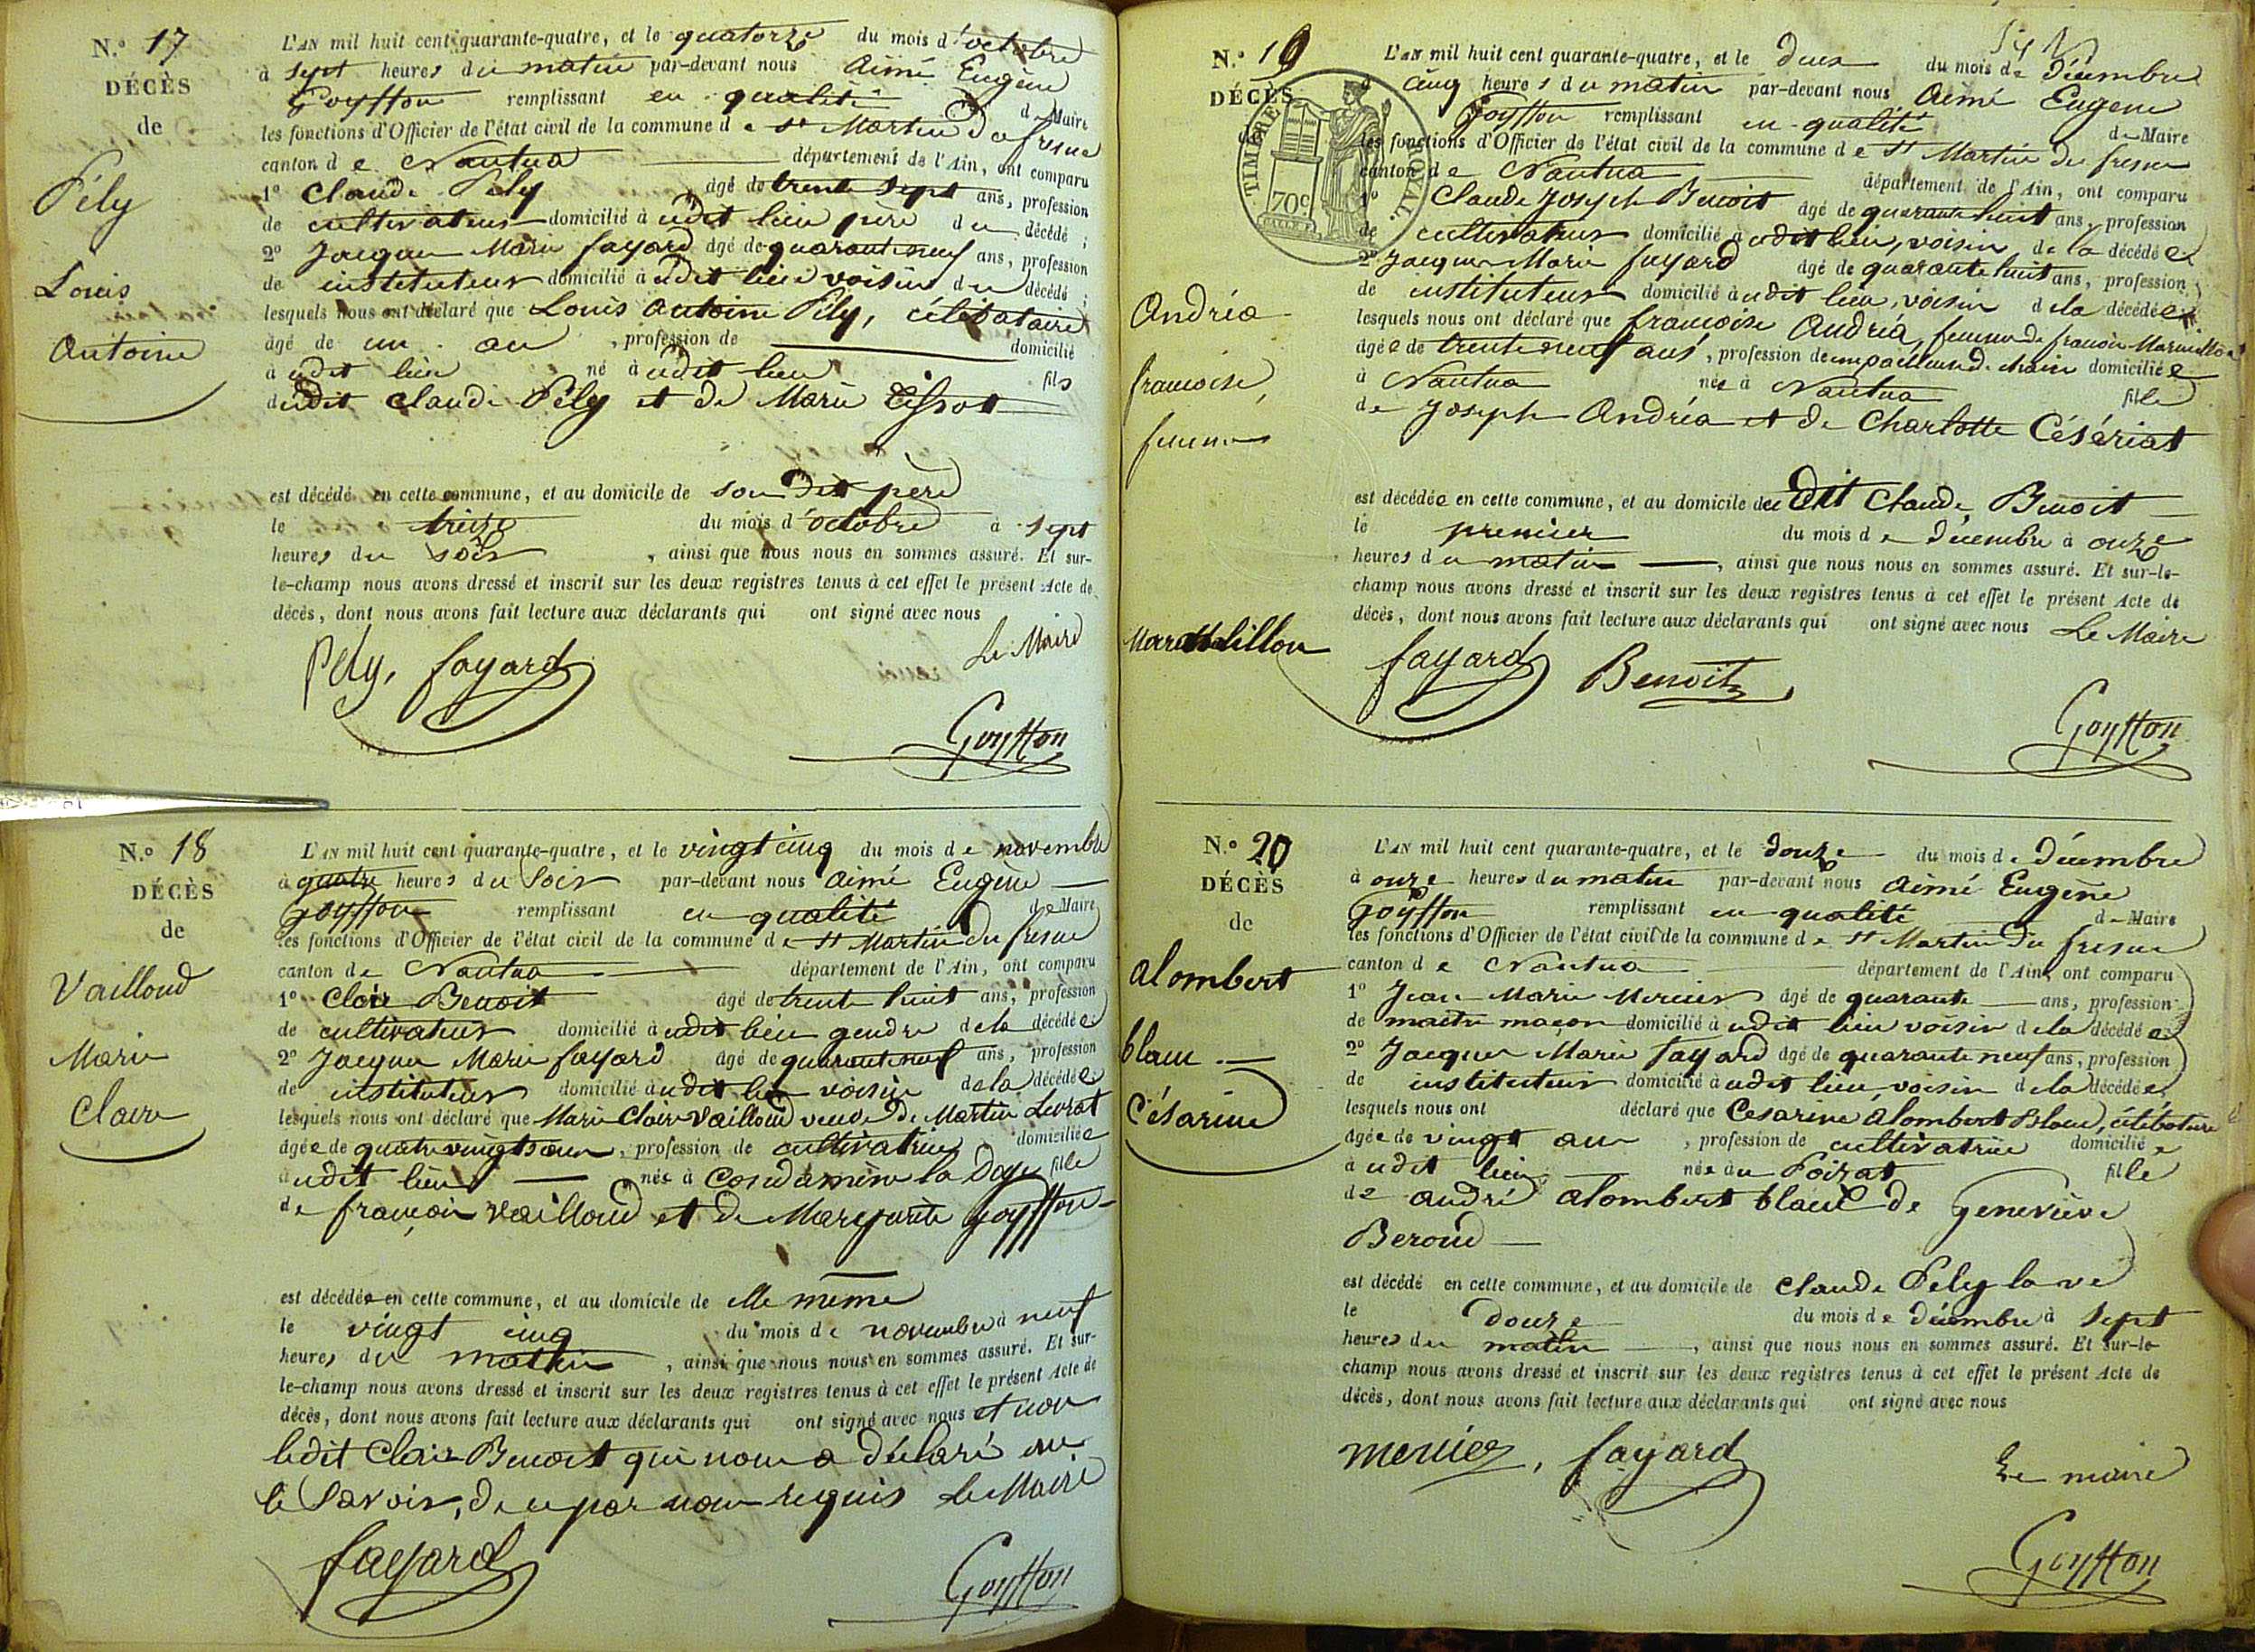 N.° 17
DÉCÈS
de
Pély
Louis
Antoine
L'AN mil huit cent quarante-quatre, et le quatorze du mois d'octobre
à sept heures du matin par-devant nous Aimé Eugène
Goyffon remplissant en qualité de Maire
les fonctions d'Officier de l'état civil de la commune de St Martin du fresne
canton de Nantua département de l'Ain, ont comparu
1° Claude Pély âgé de trente sept ans, profession
de cultivateur domicilié à udit lieu père du décédé ;
2° Jacques Marie fayard âgé de quarante neuf ans, profession
de instituteur domicilié à udit lieu voisin du décédé ;
lesquels nous ont déclaré que Louis Antoine Pély, célibataire
âgé de un an , profession de domicilié
à udit lieu né à udit lieu fils
dudit Claude Pély et de Marie Tissot
est décédé en cette commune, et au domicile de son dit père
le treize du mois d'octobre à sept
heures du soir , ainsi que nous nous en sommes assuré. Et sur-
le-champ nous avons dressé et inscrit sur les deux registres tenus à cet effet le présent Acte de
décès, dont nous avons fait lecture aux déclarants qui ont signé avec nous
Le Maire
Pely, fayard
Goyffon
N.° 18
DÉCÈS
de
Vailloud
Marie
Claire
L'AN mil huit cent quarante-quatre, et le vingt cinq du mois de novembre
à quatre heures du soir par-devant nous Aimé Eugène
Goyffon remplissant en qualité de Maire
les fonctions d'Officier de l'état civil de la commune de St Martin du fresne
canton de Nantua département de l'Ain, ont comparu
1° Clair Benoit âgé de trente huit ans, profession
de cultivateur domicilié à udit lieu gendre de la décédée
2° Jacques Marie fayard âgé de quarante neuf ans, profession
de instituteur domicilié à udit lieu voisin de la décédée
lesquels nous ont déclaré que Marie Claire Vailloud veuve de Martin Levrat
âgée de quatre vingts ans, profession de cultivatrice domiciliée
à udit lieu née à Condamine la Doye fille
de françois Vailloud et de Marguerite Goyffon
est décédée en cette commune, et au domicile de elle même
le vingt cinq du mois de novembre à neuf
heures du matin , ainsi que nous nous en sommes assuré. Et sur-
le-champ nous avons dressé et inscrit sur les deux registres tenus à cet effet le présent Acte de
décès, dont nous avons fait lecture aux déclarants qui ont signé avec nous et non
ledit Clair Benoit qui nous a déclaré ne
le savoir, de ce par nous requis Le Maire
fayard
Goyffon
N.° 19
DÉCÈS
TIMBRE ROYAL
70c
Andréa
francoise,
femme
L'AN mil huit cent quarante-quatre, et le deux du mois de Décembre
à cinq heures du matin par-devant nous Aimé Eugene
Goyffon remplissant en qualité de Maire
les fonctions d'Officier de l'état civil de la commune de St Martin du fresne
canton de Nantua département de l'Ain, ont comparu
1° Claude Joseph Benoit âgé de quarante huit ans, profession
de cultivateur domicilié à udit lieu, voisin de la décédée
2° Jacques Marie fayard âgé de quarante huit ans, profession
de instituteur domicilié à udit lieu, voisin de la décédée
lesquels nous ont déclaré que francoise Andréa, femme de francois
âgée de trente neuf ans, profession de domiciliée
à Nantua née à Nantua fille
de Joseph Andréa et de Charlotte Césériat
est décédée en cette commune, et au domicile du dit Claude Benoit
le premier du mois de décembre à onze
heures du matin , ainsi que nous nous en sommes assuré. Et sur-le-
champ nous avons dressé et inscrit sur les deux registres tenus à cet effet le présent Acte de
décès, dont nous avons fait lecture aux déclarants qui ont signé avec nous Le Maire
fayard Benoit
Goyffon
N.° 20
DÉCÈS
de
alombert
blanc
Césarine
L'AN mil huit cent quarante-quatre, et le douze du mois de Décembre
à onze heures du matin par-devant nous Aimé Eugène
Goyffon remplissant en qualité de Maire
les fonctions d'Officier de l'état civil de la commune de St Martin du fresne
canton de Nantua département de l'Ain, ont comparu
1° Jean Marie Mercier âgé de quarante ans, profession
de maitre maçon domicilié à udit lieu voisin de la décédée
2° Jacques Marie fayard âgé de quarante neuf ans, profession
de instituteur domicilié à udit lieu voisin de la décédée
lesquels nous ont déclaré que Cesarine alombert Blanc, célibataire
âgée de vingt ans , profession de cultivatrice domiciliée
à udit lieu née au Poizat fille
de andré alombert blanc de Geneviève
Beroud
est décédé en cette commune, et au domicile de Claude Pely
le douze du mois de Décembre à sept
heures du matin , ainsi que nous nous en sommes assuré. Et sur-le-
champ nous avons dressé et inscrit sur les deux registres tenus à cet effet le présent Acte de
décès, dont nous avons fait lecture aux déclarants qui ont signé avec nous
mercier, fayard
Le maire
Goyffon